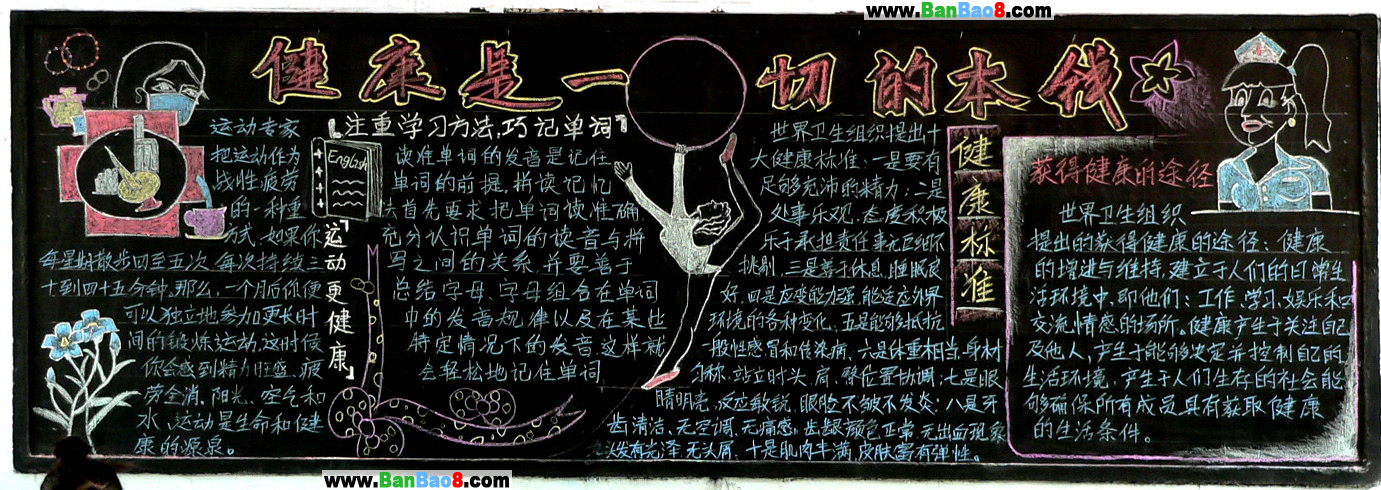 www.BanBao8.com
健康是一切的本钱
运动专家
把运动作为
战性疲劳
的一种重
方式,如果你
每星期散步四至五次,每次持续三
十到四十五分钟。那么,一个月后你便
可以独立地参加更长时
间的锻炼运动,这时候
你会感到精力旺盛,疲
劳全消,阳光、空气和
水、运动是生命和健
康的源泉。
English
『运动更健康』
『注重学习方法,巧记单词』
读准单词的发音是记住
单词的前提,拼读记忆
法首先要求把单词读准确,
充分认识单词的读音与拼
写之间的关系,并要善于
总结字母、字母组合在单词
中的发音规律以及在某些
特定情况下的发音这样就
会轻松地记住单词
世界卫生组织提出十
大健康标准:一是要有
足够充沛的精力;二是
处事乐观,态度积极
乐于承担责任事无巨细不
挑剔,三是善于休息,睡眠良
好,四是应变能力强,能适应外界
环境的各种变化,五是能够抵抗
一般性感冒和传染病,六是体重相当,身材
匀称,站立时头、肩、臀位置协调;七是眼
睛明亮,反应敏锐,眼睑不皱不发炎;八是牙
齿清洁、无空调、无痛感,齿龈颜色正常,无出血现象
头发有光泽,无头屑,十是肌肉丰满,皮肤富有弹性。
健康标准
获得健康的途径
世界卫生组织
提出的获得健康的途径:健康
的增进与维持,建立于人们的日常生
活环境中,即他们:工作、学习、娱乐和
交流情感的场所。健康产生于关注自己
及他人,产生于能够决定并控制自己的
生活环境,产生于人们生存的社会能
够确保所有成员具有获取健康
的生活条件。
www.BanBao8.com